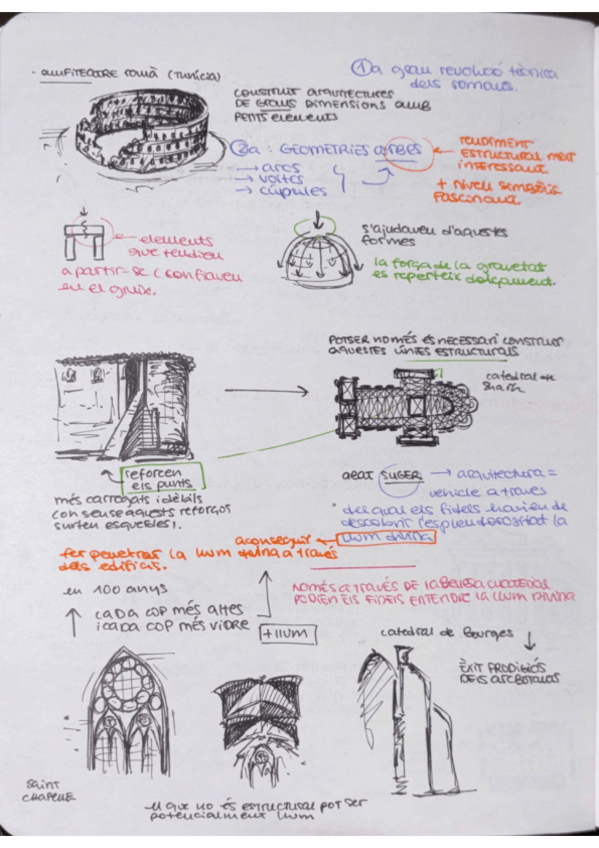 · AMFITEATRE ROMÀ (TUNÍCIA)
①a gran revolució tècnica
dels romans.
CONSTRUIR ARQUITECTURES
DE GRANS DIMENSIONS AMB
PETITS ELEMENTS
②a : GEOMETRIES
→ arcs
→ voltes
→ cúpules
RENDIMENT
ESTRUCTURAL MOLT
INTERESSANT
+ NIVELL SIMBÒLIC
FASCINANT
elements
que tendien
a partir-se i confiaven
en el gruix.
S'ajudaven d'aquestes
formes
la força de la gravetat
es reparteix dolçament.
POTSER NOMÉS ÉS NECESSARI CONSTRUIR
AQUESTES LÍNIES ESTRUCTURALS
catedral de
reforcen
els punts
més carregats i dèbils
con sense aquests reforços
surten esquerdes).
abat SUGER → arquitectura =
vehicle a través
del qual els fidels havien de
descobrir l'esplendorositat la
llum divina
aconseguir
fer penetrar la llum divina a través
dels edificis.
en 100 anys
↑ CADA COP MÉS ALTES
i CADA COP MÉS VIDRE
+ llum
NOMÉS A TRAVÉS DE LA BELLESA MATERIAL
PODIEN ELS FIDELS ENTENDRE LA LLUM DIVINA
catedral de Bourges
ÈXIT PRODIGIÓS
DELS ARCBOTANTS
SAINT
CHAPELLE
el que no és estructural pot ser
potencialment llum